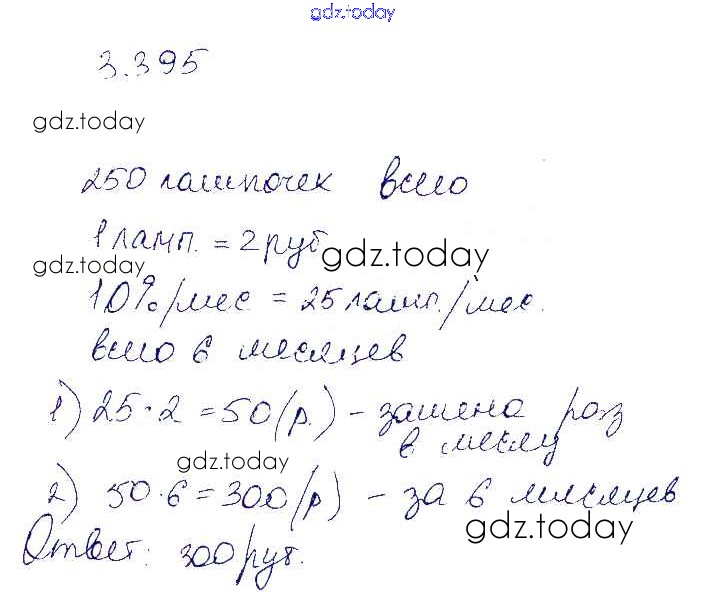 gdz.today
3.395
gdz.today
250 лампочек всего
1 ламп. = 2 руб
gdz.today
gdz.today
10%/мес = 25 ламп./мес.
всего 6 месяцев
1) 25·2 = 50 (р.) – замена раз
в месяц
gdz.today
2) 50·6 = 300 (р) – за 6 месяцев
gdz.today
Ответ: 300 руб.